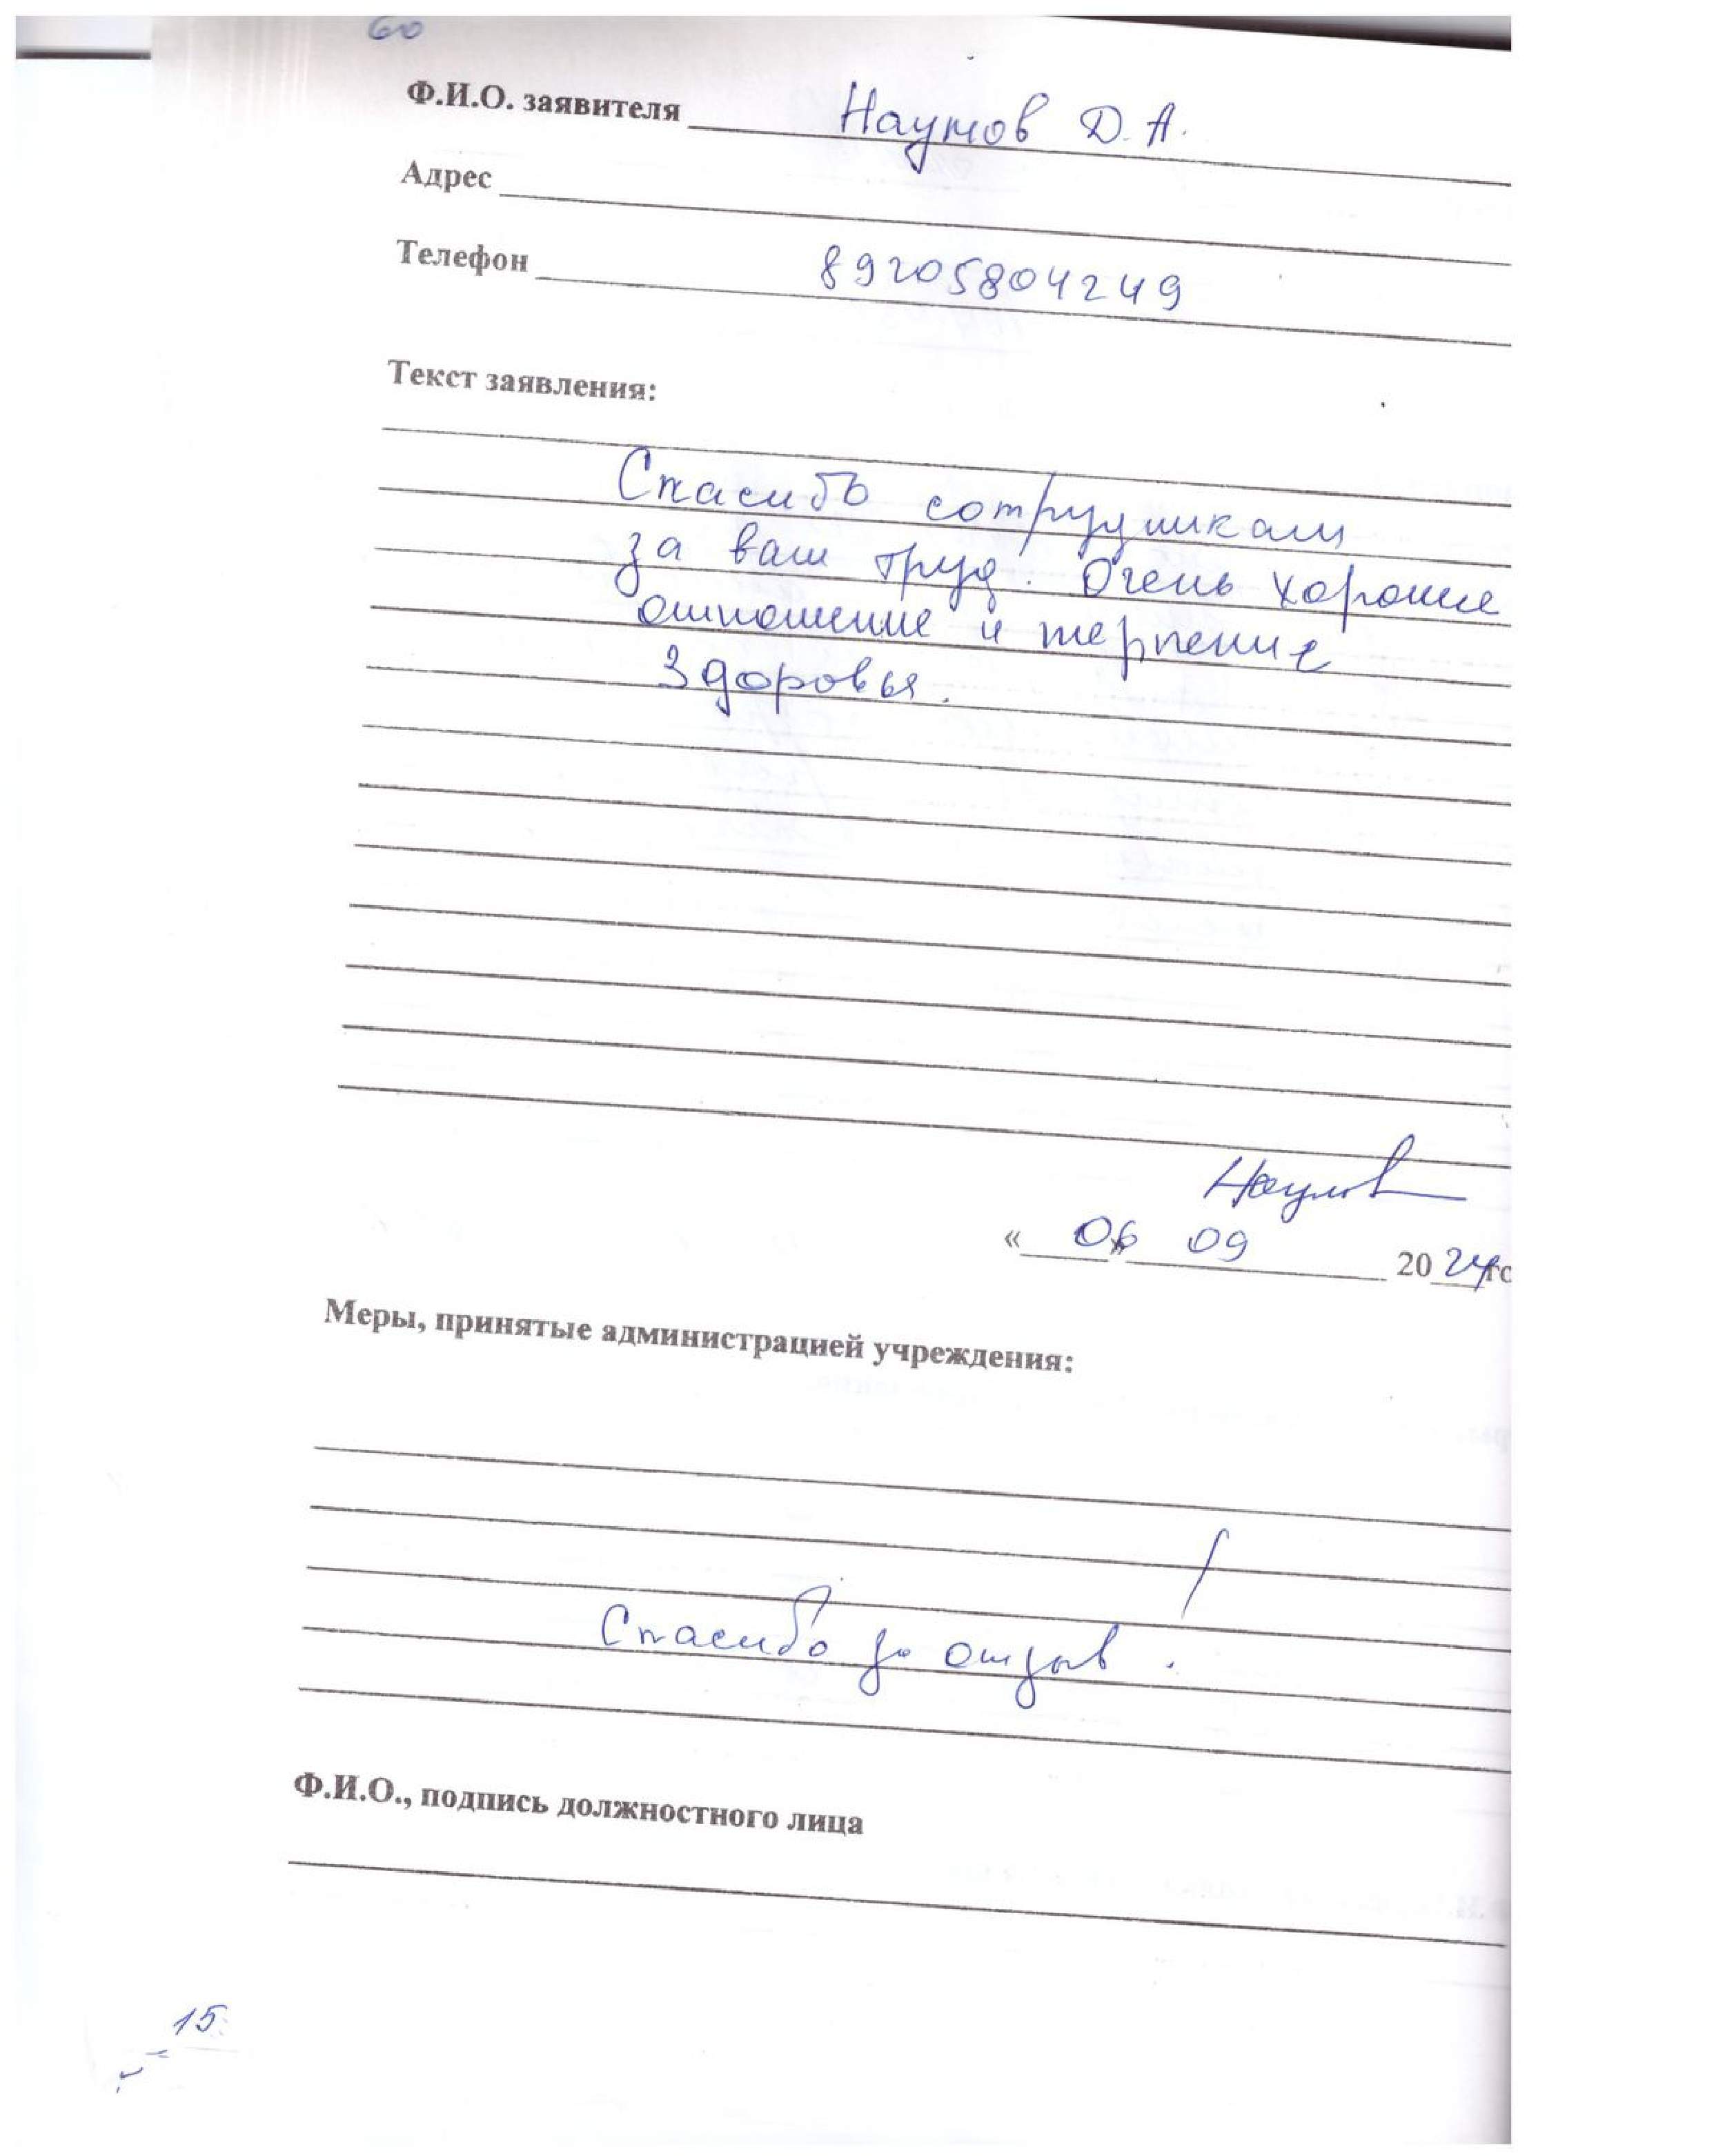 60
Ф.И.О. заявителя Наумов Д.А.
Адрес
Телефон 89205804249
Текст заявления:
Спасибо сотрудникам
за ваш труд. Очень хорошее
отношение и терпение
Здоровья.
Наумов
« 06 » 09 2024 го
Меры, принятые администрацией учреждения:
Спасибо за отзыв.
Ф.И.О., подпись должностного лица
15